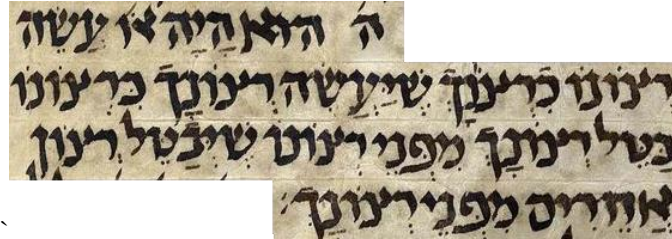 ה הוא היה או עשה
רצונו כרצונך שיעשה רצונך כרצונו
בטל רצונך מפני רצונו שיבטל רצון
אחרים מפני רצונך